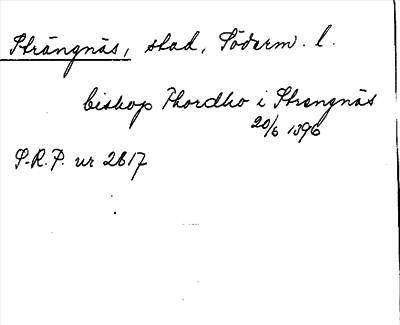 Strängnäs, stad, Söderm. l.
biskop Thordho i Strengnäs
20/6 1396
S.R.P. nr 2617